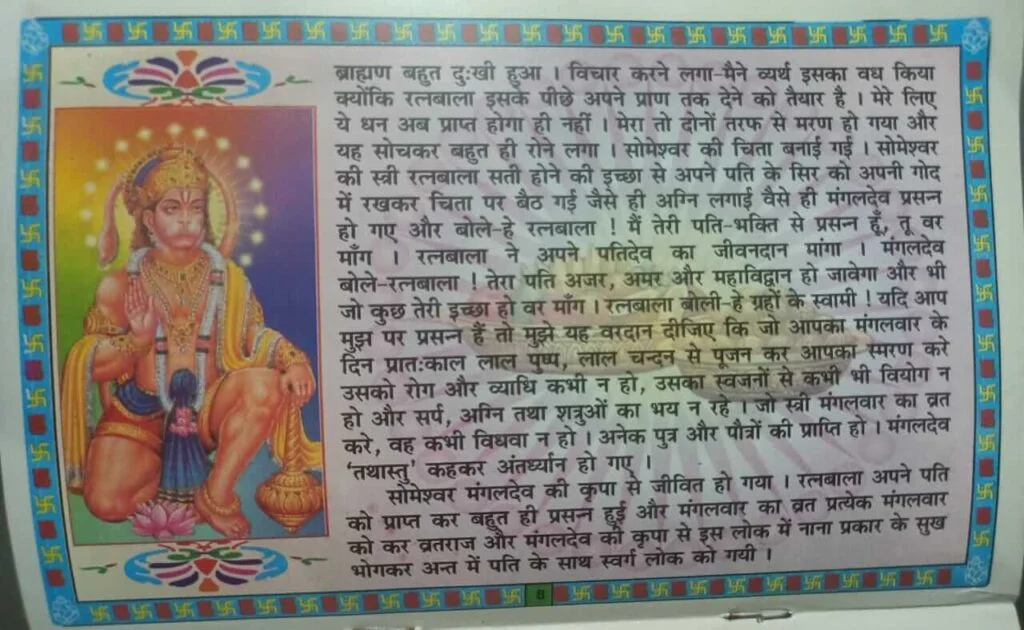 ब्राह्मण बहुत दुःखी हुआ । विचार करने लगा-मैने व्यर्थ इसका वध किया
क्योंकि रत्नबाला इसके पीछे अपने प्राण तक देने को तैयार है । मेरे लिए
ये धन अब प्राप्त होगा ही नहीं । मेरा तो दोनों तरफ से मरण हो गया और
यह सोचकर बहुत ही रोने लगा । सोमेश्वर की चिता बनाई गई । सोमेश्वर
की स्त्री रत्नबाला सती होने की इच्छा से अपने पति के सिर को अपनी गोद
में रखकर चिता पर बैठ गई जैसे ही अग्नि लगाई वैसे ही मंगलदेव प्रसन्न
हो गए और बोले-हे रत्नबाला ! मैं तेरी पति-भक्ति से प्रसन्न हूँ, तू वर
माँग । रत्नबाला ने अपने पतिदेव का जीवनदान मांगा । मंगलदेव
बोले-रत्नबाला ! तेरा पति अजर, अमर और महाविद्वान हो जावेगा और भी
जो कुछ तेरी इच्छा हो वर माँग । रत्नबाला बोली-हे ग्रहों के स्वामी ! यदि आप
मुझ पर प्रसन्न हैं तो मुझे यह वरदान दीजिए कि जो आपका मंगलवार के
दिन प्रातःकाल लाल पुष्प, लाल चन्दन से पूजन कर आपका स्मरण करे
उसको रोग और व्याधि कभी न हो, उसका स्वजनों से कभी भी वियोग न
हो और सर्प, अग्नि तथा शत्रुओं का भय न रहे । जो स्त्री मंगलवार का व्रत
करे, वह कभी विधवा न हो । अनेक पुत्र और पौत्रों की प्राप्ति हो । मंगलदेव
‘तथास्तु’ कहकर अंतर्ध्यान हो गए ।
सोमेश्वर मंगलदेव की कृपा से जीवित हो गया । रत्नबाला अपने पति
को प्राप्त कर बहुत ही प्रसन्न हुई और मंगलवार का व्रत प्रत्येक मंगलवार
को कर व्रतराज और मंगलदेव की कृपा से इस लोक में नाना प्रकार के सुख
भोगकर अन्त में पति के साथ स्वर्ग लोक को गयी ।
8